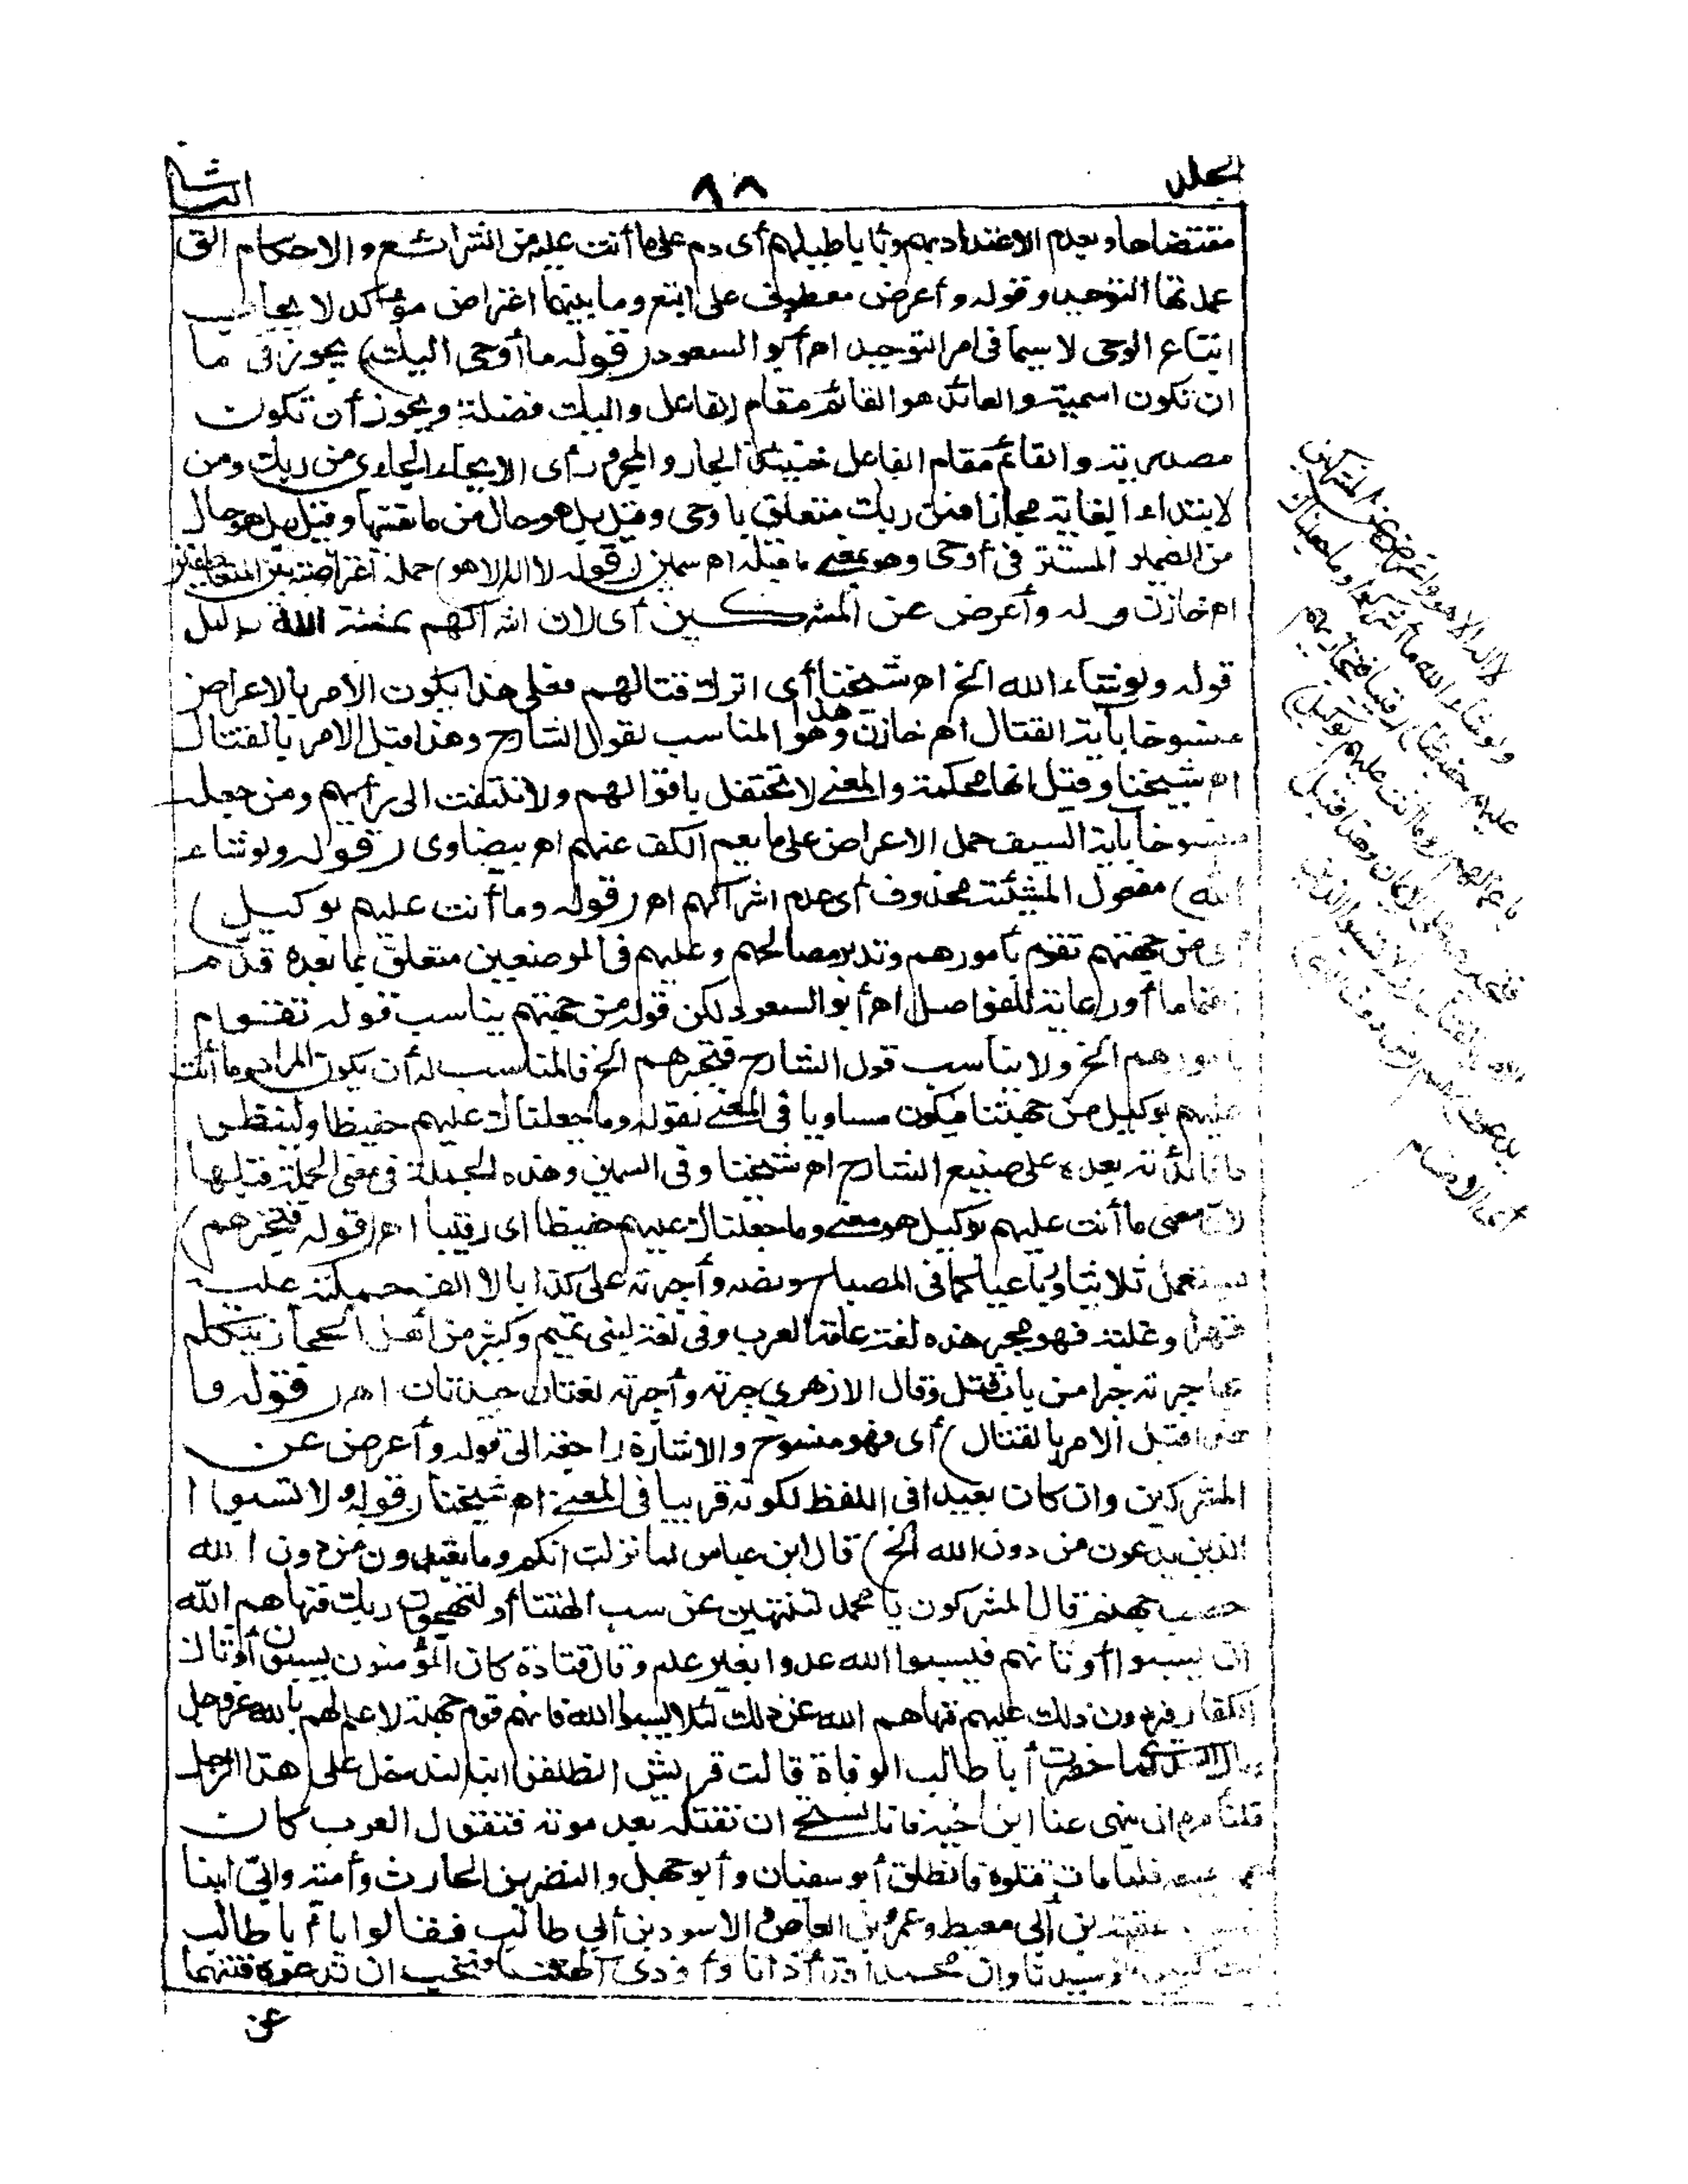 الجلد ٦٨ الثا
مقتضاها وبعدم الاعتداد بهم وبأباطيلهم أى دم على ما أنت عليه من الشرائع والاحكام التى
عمدتها التوحيد وقوله وأعرض معطوف على اتبع وما بينهما اعتراض مؤكد لايجاب
اتباع الوحى لا سيما فى امر التوحيد اه أبو السعود (قوله ما أوحى اليك) يجوز فى ما
ان تكون اسمية والعائد هو القائم مقام الفاعل واليك فضلة ويجوز أن تكون
مصدرية والقائم مقام الفاعل حينئذ الجار والمجرور أى الايحاء الجاءى من ربك ومن
لابتداء الغاية مجازا فمن ربك متعلق باوحى وقيل بل هو حال من ما نفسها وقيل بل هو حال
من الضمير المستتر فى أوحى وهو بمعنى ما قبله اه سمين (قوله لا اله الا هو) جملة اعتراضية بين المتعاطفين
اه خازن وله وأعرض عن المشركين أى لان اشراكهم بمشئة الله بدليل
قوله ولو شاء الله الخ اه شيخنا أى اترك قتالهم فعلى هذا يكون الأمر بالاعراض
منسوخا بآية القتال اه خازن وهذا هو المناسب لقول الشارح وهذا قبل الامر بالقتال
اه شيخنا وقيل انها محكمة والمعنى لا تحتفل باقوالهم ولا تلتفت الى رأيهم ومن جعله
منسوخا بآية السيف حمل الاعراض على ما يعم الكف عنهم اه بيضاوى (قوله ولو شاء
الله) مفعول المشيئة محذوف أى عدم اشراكهم اه (قوله وما أنت عليهم بوكيل)
أى من جهتهم تقوم بأمورهم وتدبر مصالحهم وعليهم فى الموضعين متعلق بما بعده قدم
اهتماما أو رعاية للفواصل اه أبو السعود لكن قوله من جهتهم يناسب قوله تقوم
بأمورهم الخ ولا يناسب قول الشارح فتجبرهم الخ فالمناسب له أن يكون المراد وما أنت
عليهم بوكيل من جهتنا فيكون مساويا فى المعنى لقوله وما جعلناك عليهم حفيظا ولينظر
ما فائدته بعده على صنيع الشارح اه شيخنا وفى السمين وهذه الجملة فى معنى الجملة قبلها
لان معنى ما أنت عليهم بوكيل هو معنى وما جعلناك عليهم حفيظا اى رقيبا اه (قوله فتجبرهم)
يستعمل ثلاثيا ورباعيا كما فى المصباح ونصه وأجبرته على كذا بالالف حملته عليه
قهرا وغلبة فهو مجبر هذه لغة عامة العرب وفى لغة لبنى تميم وكثير من أهل الحجاز يتكلم
بها جبرته جبرا من باب قتل وقال الازهرى جبرته وأجبرته لغتان جيدتان اه (قوله و
هذا قبل الأمر بالقتال) أى فهو منسوخ والاشارة راجعة الى قوله وأعرض عن
المشركين وان كان بعيدا فى اللفظ لكونه قريبا فى المعنى اه شيخنا (قوله ولا تسبوا
الذين يدعون من دون الله الخ) قال ابن عباس لما نزلت انكم وما تعبدون من دون الله
حصب جهنم قال المشركون يا محمد لتنتهين عن سب الهتنا أو لنهجون ربك فنهاهم الله
ان يسبوا أوثانهم فيسبوا الله عدوا بغير علم وقال قتادة كان المؤمنون يسبون أوثان
الكفار فيردون ذلك عليهم فنهاهم الله عن ذلك لئلا يسبوا الله فانهم قوم جهلة لا علم لهم بالله عز وجل
وقال السدى لما حضرت أبا طالب الوفاة قالت قريش انطلقوا بنا لندخل على هذا الرجل
فلنأمره ان ينهى عنا ابن أخيه فانا نستحى ان نقتله بعد موته فتقول العرب كان
عمه يمنعه فلما مات قتلوه فانطلق أبو سفيان وأبو جهل والنضر بن الحارث وأمية وأبى ابنا
عقبة بن أبى معيط وعمرو بن العاص والاسود بن أبى طالب فقالوا يا أبا طالب
أنت كبيرنا وسيدنا وان محمدا قد أذانا وأذى آلهتنا ونحب ان تدعوه فتنهاه
عن
لا اله الا هو وأعرض عن المشركين
ولو شاء الله ما أشركوا وما جعلناك
عليهم حفيظا) رقيبا فتجازيهم
باعمالهم (وما أنت عليهم بوكيل)
فتجبرهم على الايمان وهذا قبل
الامر بالقتال (ولا تسبوا الذين
يدعون) هم (من دون الله)
أى الاصنام